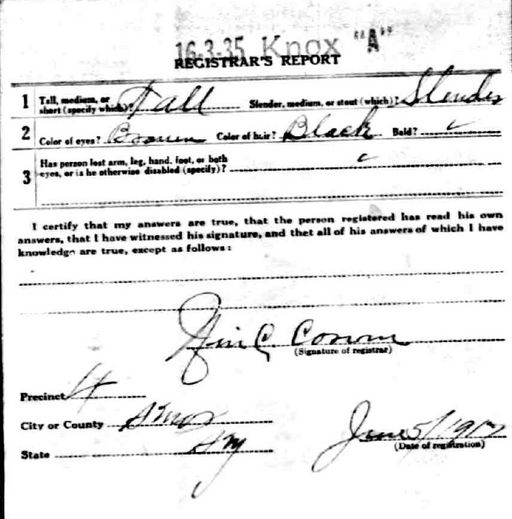 16-3-35 Knox "A"
REGISTRAR'S REPORT
1 Tall, medium, or short (specify which)? Tall Slender, medium, or stout (which)? Slender
2 Color of eyes? Brown Color of hair? Black Bald?
3 Has person lost arm, leg, hand, foot, or both eyes, or is he otherwise disabled (specify)?
I certify that my answers are true, that the person registered has read his own
answers, that I have witnessed his signature, and that all of his answers of which I have
knowledge are true, except as follows:
(Signature of registrar)
Precinct 4
City or County Knox
State Ky
June 5/1917
(Date of registration)